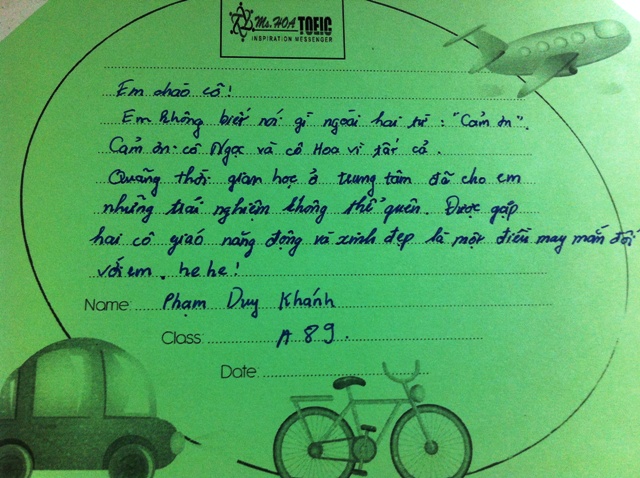 Ms. HOA TOEIC
INSPIRATION MESSENGER
Em chào cô!
Em không biết nói gì ngoài hai từ: "Cảm ơn".
Cảm ơn cô Ngọc và cô Hoa vì tất cả.
Quãng thời gian học ở trung tâm đã cho em
những trải nghiệm không thể quên. Được gặp
hai cô giáo năng động và xinh đẹp là một điều may mắn đối
với em. he he!
Name: Phạm Duy Khánh
Class: A89.
Date: